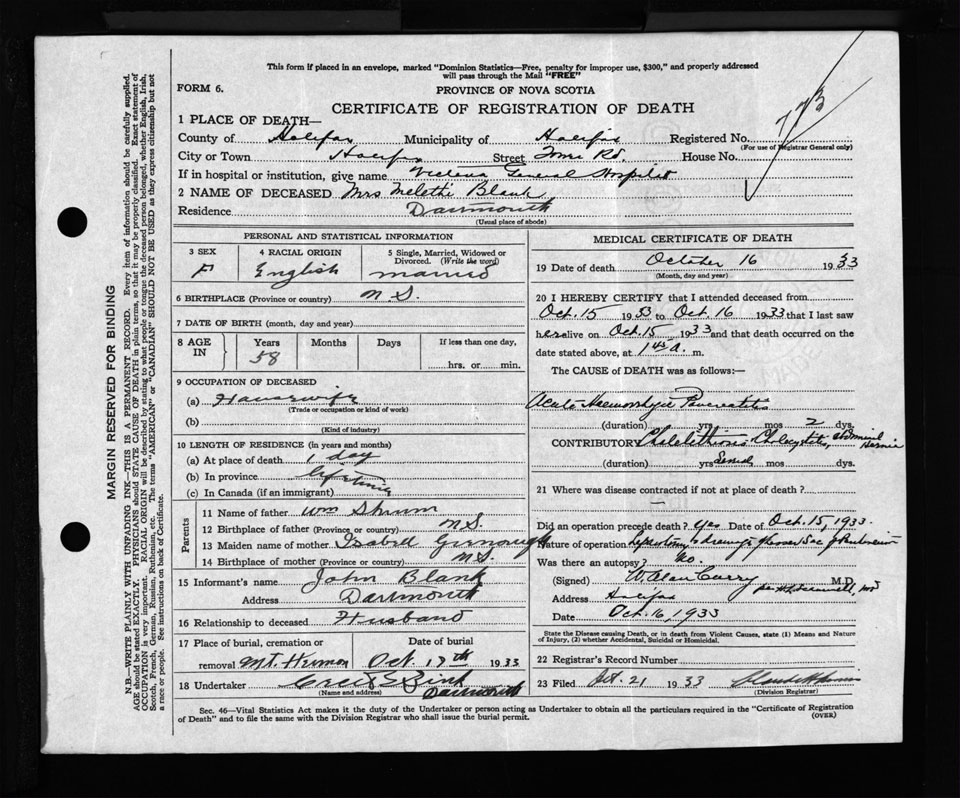 This form if placed in an envelope, marked "Dominion Statistics—Free, penalty for improper use, $300," and properly addressed
will pass through the Mail "FREE"
FORM 6.
PROVINCE OF NOVA SCOTIA
CERTIFICATE OF REGISTRATION OF DEATH
173
1 PLACE OF DEATH—
County of Halifax Municipality of Halifax Registered No.
(For use of Registrar General only)
City or Town Halifax Street Rd. House No.
If in hospital or institution, give name Victoria General Hospital
2 NAME OF DECEASED Mrs Blank
Residence Dartmouth
(Usual place of abode)
PERSONAL AND STATISTICAL INFORMATION
3 SEX F
4 RACIAL ORIGIN English
5 Single, Married, Widowed or Divorced. (Write the word) married
6 BIRTHPLACE (Province or country) N.S.
7 DATE OF BIRTH (month, day and year)
8 AGE IN Years 58 Months Days If less than one day, hrs. or min.
9 OCCUPATION OF DECEASED
(a) Housewife
(Trade or occupation or kind of work)
(b)
(Kind of industry)
10 LENGTH OF RESIDENCE (in years and months)
(a) At place of death 1 day
(b) In province life time
(c) In Canada (if an immigrant)
Parents
11 Name of father Wm Shrum
12 Birthplace of father (Province or country) N.S.
13 Maiden name of mother Isabell
14 Birthplace of mother (Province or country) N.S.
15 Informant's name John Blank
Address Dartmouth
16 Relationship to deceased Husband
17 Place of burial, cremation or removal Mt. Hermon
Date of burial Oct 17th 1933
18 Undertaker
(Name and address) Dartmouth
MEDICAL CERTIFICATE OF DEATH
19 Date of death October 16 1933
(Month, day and year)
20 I HEREBY CERTIFY that I attended deceased from
Oct. 15 1933 to Oct. 16 1933 that I last saw
her alive on Oct. 15 1933 and that death occurred on the
date stated above, at a. m.
The CAUSE of DEATH was as follows:—
Acute Haemorrhagic Pancreatitis
(duration) yrs mos 2 dys.
CONTRIBUTORY Cholelithiasis Cholecystitis, abdominal Hernia
(duration) yrs Several mos dys.
21 Where was disease contracted if not at place of death?
Did an operation precede death? Yes Date of Oct. 15, 1933.
Nature of operation Laparotomy & drainage of lesser Sac of Peritoneum
Was there an autopsy? No.
(Signed) W. Alan Curry M.D.
Address Halifax
Date Oct. 16, 1933
State the Disease causing Death, or in death from Violent Causes, state (1) Means and Nature
of Injury, (2) whether Accidental, Suicidal or Homicidal.
22 Registrar's Record Number
23 Filed Oct. 21 1933
(Division Registrar)
Sec. 46—Vital Statistics Act makes it the duty of the Undertaker or person acting as Undertaker to obtain all the particulars required in the "Certificate of Registration
of Death" and to file the same with the Division Registrar who shall issue the burial permit.
(OVER)
MARGIN RESERVED FOR BINDING
N.B.—WRITE PLAINLY WITH UNFADING INK—THIS IS A PERMANENT RECORD. Every item of information should be carefully supplied.
AGE should be stated EXACTLY. PHYSICIANS should state CAUSE OF DEATH in plain terms, so that it may be properly classified. Exact statement of
OCCUPATION is very important. RACIAL ORIGIN will be described by stating to what people or tongue the deceased person belonged, whether English, Irish,
Scotch, French, German, Russian, Ruthenian, etc. The terms "AMERICAN" or "CANADIAN" SHOULD NOT BE USED as they express citizenship but not
a race or people. See instructions on back of Certificate.